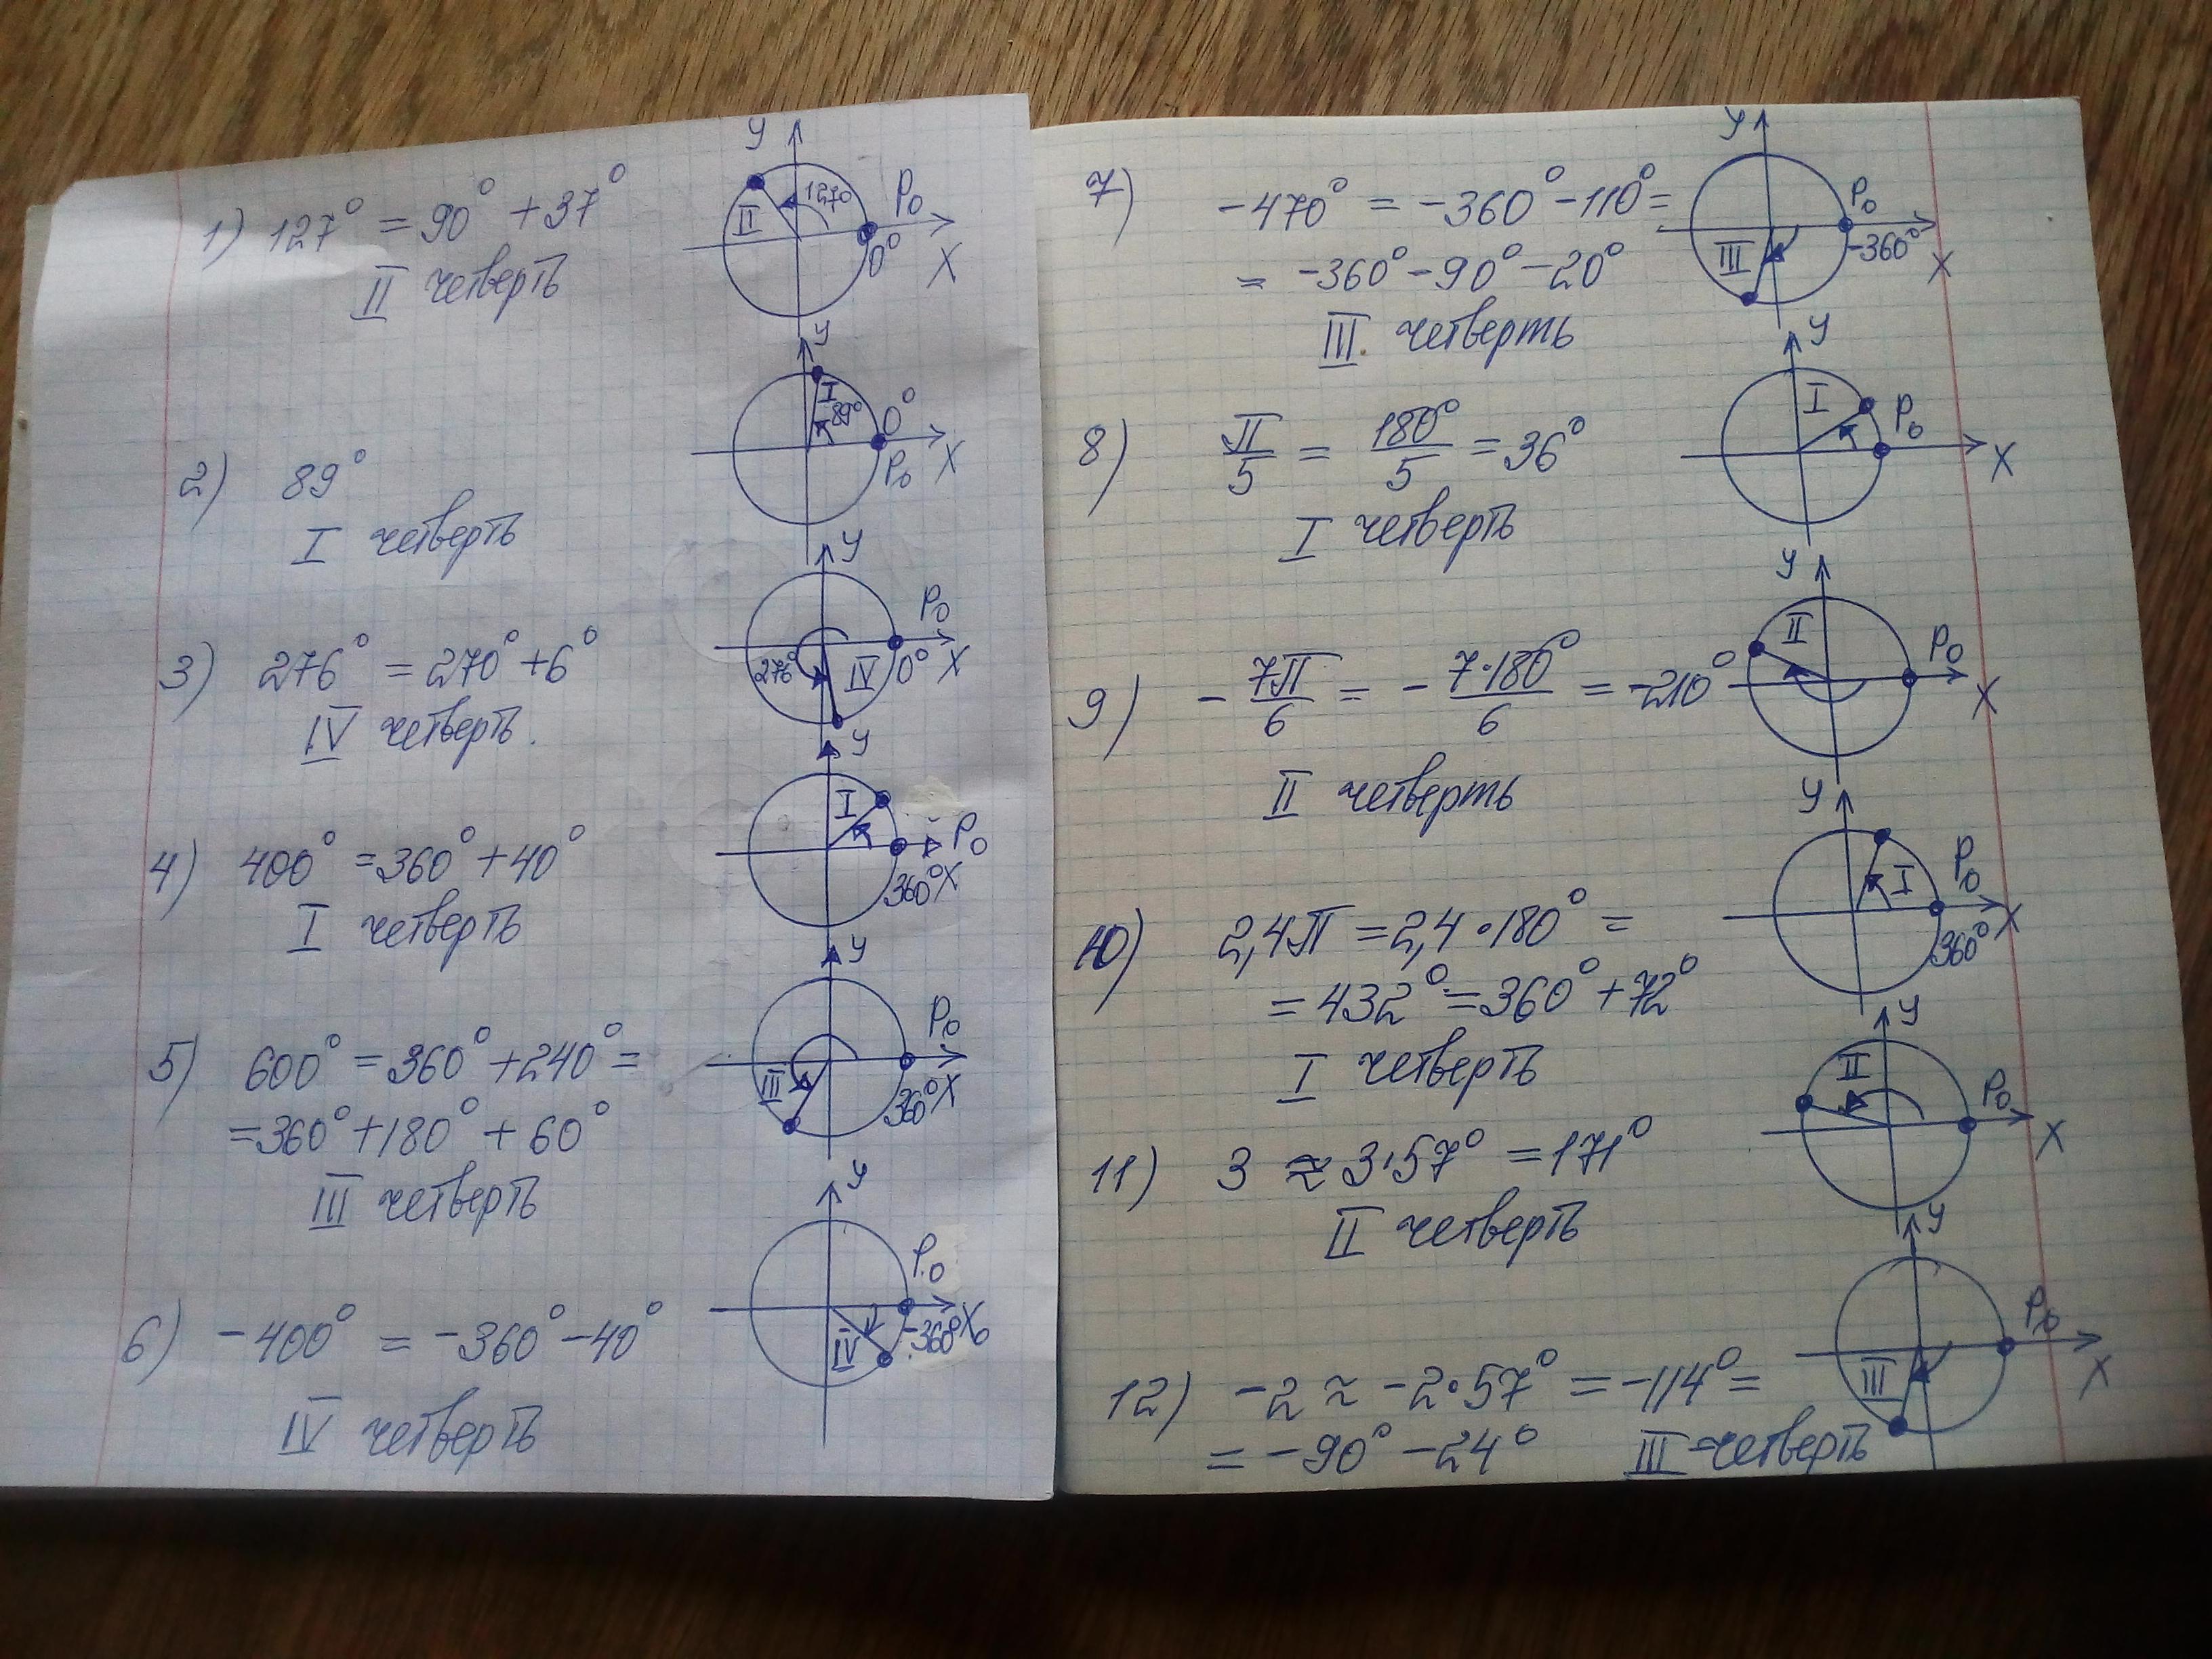 1) 127° = 90° + 37°
II четверть
y
127°
II
P₀
0°
X
2) 89°
I четверть
y
I
89°
0°
P₀
X
3) 276° = 270° + 6°
IV четверть.
y
276°
IV
P₀
0°
X
4) 400° = 360° + 40°
I четверть
y
I
P₀
360°
X
5) 600° = 360° + 240° =
= 360° + 180° + 60°
III четверть
y
III
P₀
360°
X
6) -400° = -360° - 40°
IV четверть
y
P₀
IV
-360°
X
7) -470° = -360° - 110° =
= -360° - 90° - 20°
III четверть
y
P₀
III
-360°
X
8) π/5 = 180°/5 = 36°
I четверть
y
I
P₀
X
9) - 7π/6 = - 7·180°/6 = -210°
II четверть
y
II
P₀
X
10) 2,4π = 2,4·180° =
= 432° = 360° + 72°
I четверть
y
I
P₀
360°
X
11) 3 ≈ 3·57° = 171°
II четверть
y
II
P₀
X
12) -2 ≈ -2·57° = -114° =
= -90° - 24° III четверть
y
III
P₀
X